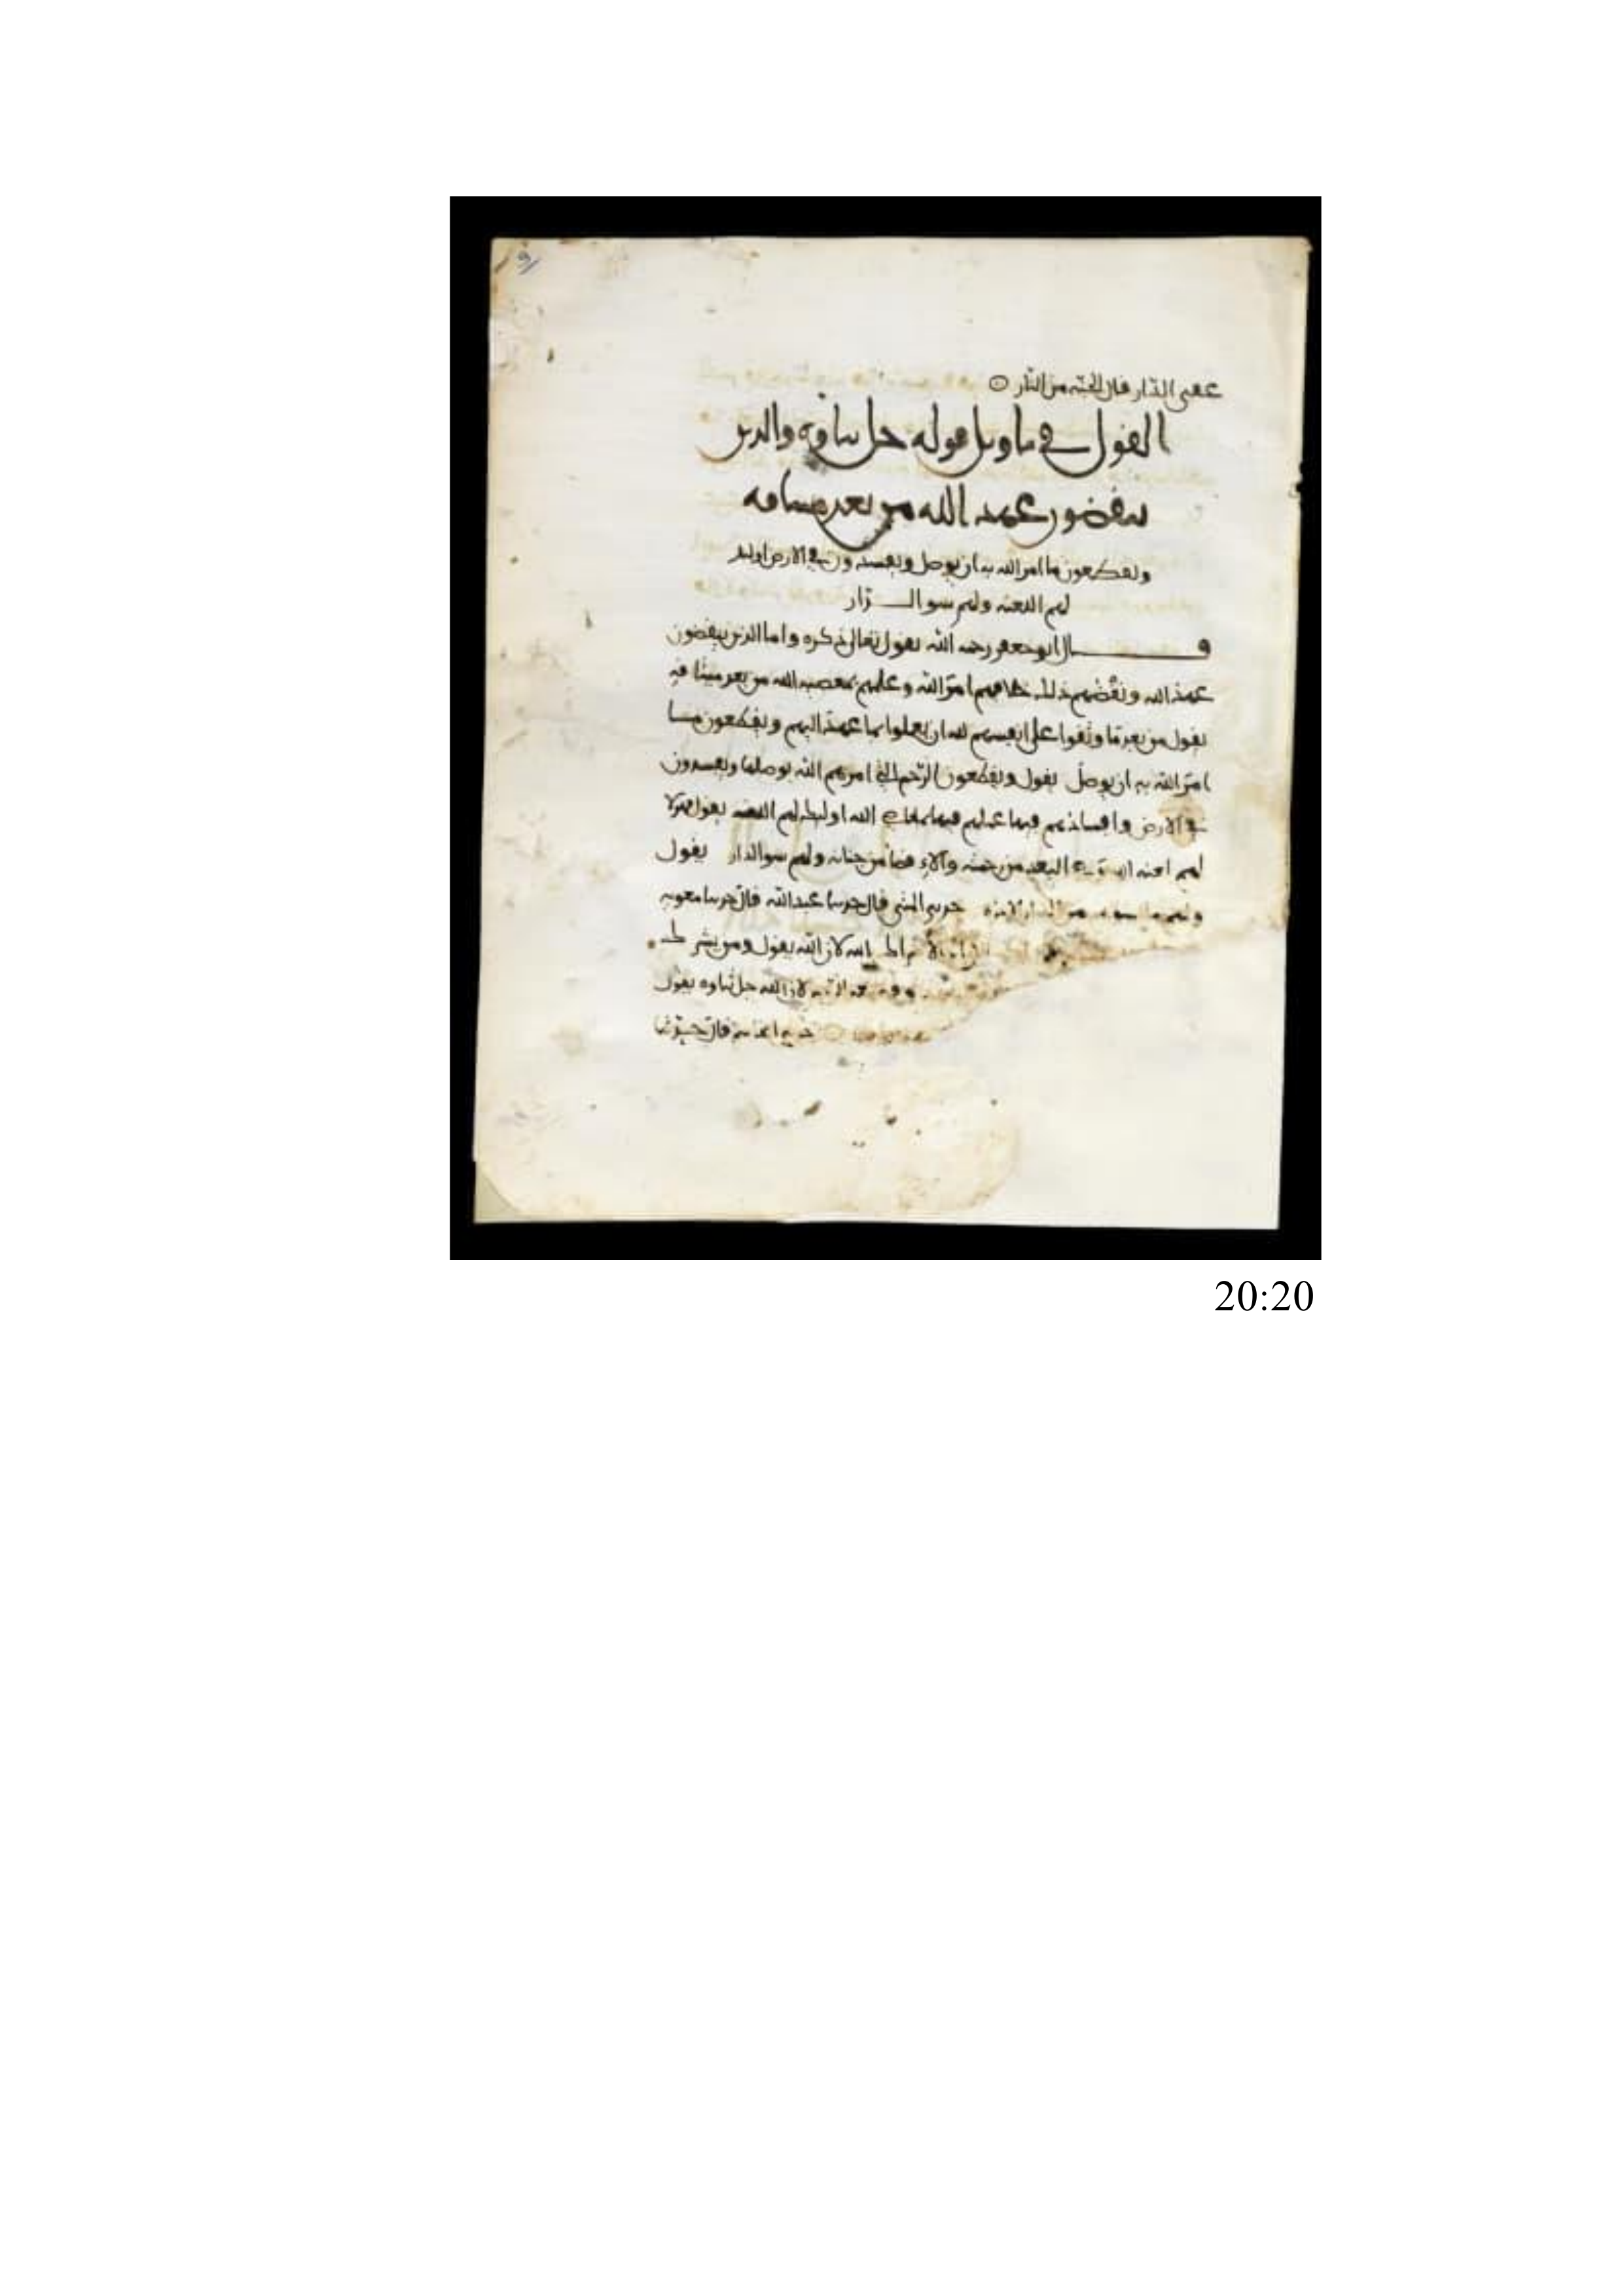 عقبى الدار قال الجنة من النار
القول في تاويل قوله جل ثناوه والذين
ينقضون عهد الله من بعد ميثاقه
ويقطعون ما امر الله به ان يوصل ويفسدون في الارض اوليك
لهم اللعنة ولهم سو الدار
قال ابو جعفر رحمه الله يقول تعالى ذكره واما الذين ينقضون
عهد الله ونقضهم ذلك خلافهم امر الله وعملهم بمعصية الله من بعد ميثاقه
يقول من بعد ما وثقوا على انفسهم لله ان يعملوا بما عهد اليهم ويقطعون ما
امر الله به ان يوصل يقول ويقطعون الرحم التي امرهم الله بوصلها ويفسدون
في الارض وافسادهم فيها عملهم فيها بمعاصي الله اوليك لهم اللعنة يقول فهولا
لهم اللعنة وهي البعد من رحمته والاقصا من جنانه ولهم سو الدار يقول
ولهم ما يسوهم في الدار الاخرة حدثني المثنى قال حدثنا عبد الله قال حدثنا معوية
الاشراك بالله لان الله يقول ومن يشرك
لان الله جل ثناوه يقول
قال حدثنا
20:20